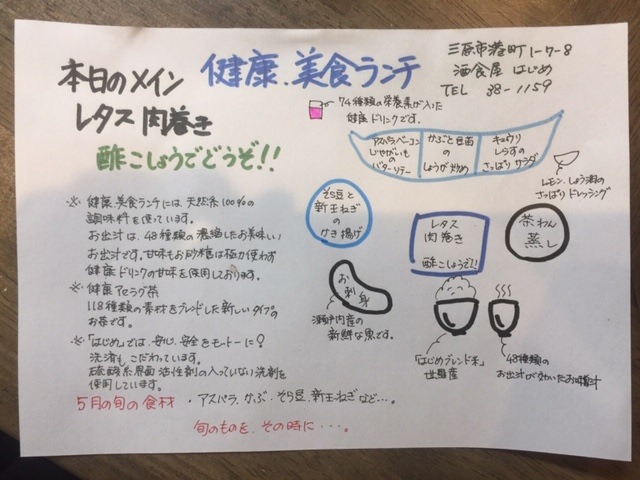 本日のメイン
レタス肉巻き
酢こしょうでどうぞ!!
健康.美食ランチ
三原市港町1-7-8
酒食屋 はじめ
TEL 38-1159
74種類の栄養素が入った
健康ドリンクです。
アスパラベーコン
じゃがいもの
バターソテー
かぶと豆苗
の
しょうが炒め
キュウリ
しらすの
さっぱりサラダ
レモン.しょう油の
さっぱりドレッシング
そら豆と
新玉ねぎ
の
かき揚げ
レタス
肉巻き
酢こしょうで!!
茶わん
蒸し
お刺身
瀬戸内産の
新鮮な魚です。
「はじめブレンド米」
世羅産
48種類の
お出汁が効いたお味噌汁
※ 健康美食ランチには、天然系100%の
調味料を使っています。
お出汁は、48種類の濃縮したお美味しい
お出汁です。甘味もお砂糖は極力使わず
健康ドリンクの甘味を使用しております。
※ 健康アセラグ茶
118種類の素材をブレンドした新しいタイプの
お茶です。
※「はじめ」では、安心、安全をモットーに?
洗済も こだわっています。
硫酸系界面活性剤の入っていない洗剤を
使用しています。
5月の旬の食材 ・アスパラ、かぶ、そら豆、新玉ねぎなど…。
旬のものを、その時に・・・。